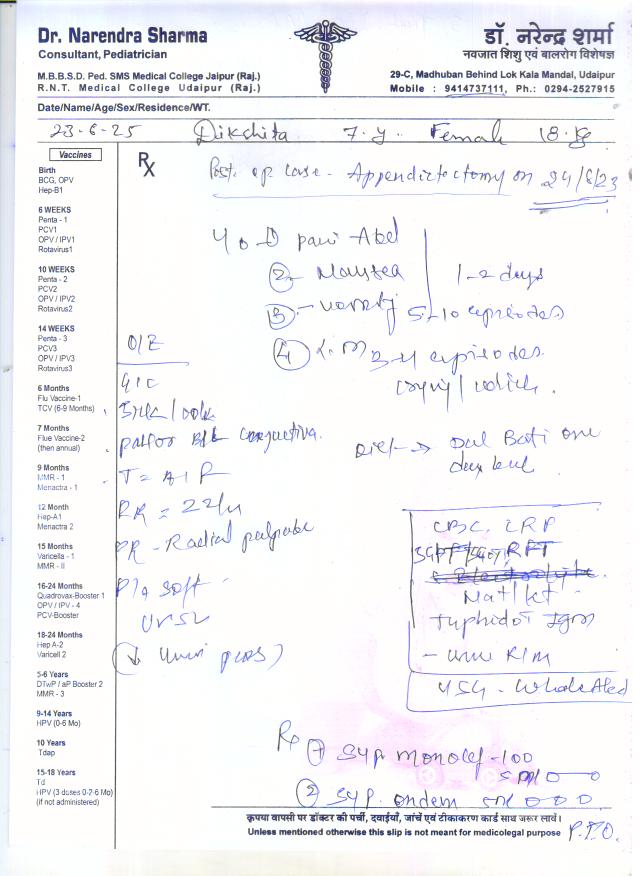 Dr. Narendra Sharma
Consultant, Pediatrician
M.B.B.S.D. Ped. SMS Medical College Jaipur (Raj.)
R.N.T. Medical College Udaipur (Raj.)
डॉ. नरेन्द्र शर्मा
नवजात शिशु एवं बालरोग विशेषज्ञ
29-C, Madhuban Behind Lok Kala Mandal, Udaipur
Mobile : 9414737111, Ph.: 0294-2527915
Date/Name/Age/Sex/Residence/WT.
23-6-25 Dikshita 7-y- Female 18-kg
Vaccines
Birth
BCG, OPV
Hep-B1
6 WEEKS
Penta - 1
PCV1
OPV / IPV1
Rotavirus1
10 WEEKS
Penta - 2
PCV2
OPV / IPV2
Rotavirus2
14 WEEKS
Penta - 3
PCV3
OPV / IPV3
Rotavirus3
6 Months
Flu Vaccine-1
TCV (6-9 Months)
7 Month
Flue Vaccine-2
(then annual)
9 Months
MMR - 1
Menactra - 1
12 Month
Hep-A1
Menactra 2
15 Months
Varicella - 1
MMR - II
16-24 Months
Quadrovax-Booster 1
OPV / IPV - 4
PCV-Booster
18-24 Months
Hep A-2
Varicell 2
5-6 Years
DTwP / aP Booster 2
MMR - 3
9-14 Years
HPV (0-6 Mo)
10 Years
Tdap
15-18 Years
Td
HPV (3 doses 0-2-6 Mo)
(if not administered)
Rx
Post. op case - Appendictectomy on 24/6/23
pain Abd
② - Nausea 1-2 days
③ - 5-10 episodes
④ 3-4 episodes
O/E
G/C
Sick look
conjunctiva.
Diet → Dal Bati one
T =
RR = 22/m
PR - Radial palpable
P/A soft
CBC, CRP
RFT
Na+/K+
Typhidot IgM
- Urine R/M
USG - Whole Abd
Rx ① Syp. monocef -100
5 ml 0 - 0
② Syp. ondem 5ml 0 0 0
कृपया वापसी पर डॉक्टर की पर्ची, दवाईयाँ, जांचें एवं टीकाकरण कार्ड साथ जरूर लावें।
Unless mentioned otherwise this slip is not meant for medicolegal purpose
P.T.O.